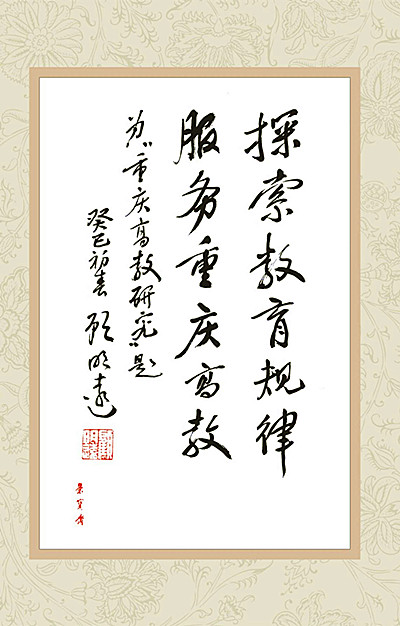 探索教育规律
服务重庆高教
为《重庆高教研究》题
癸巳初春 顾明远
荣宝斋